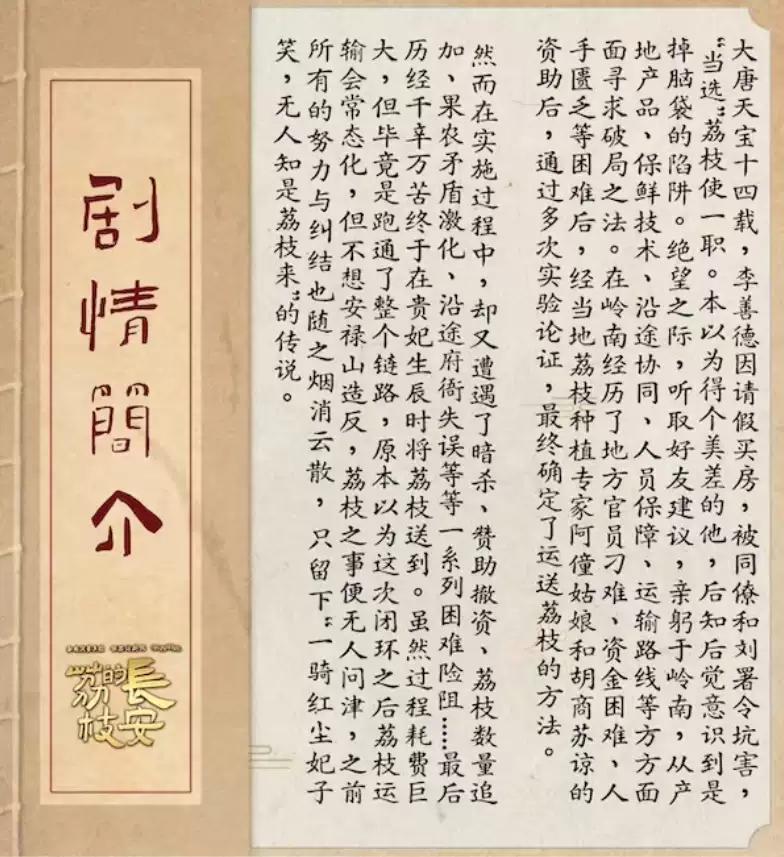 剧情簡介
大唐天宝十四载，李善德因请假买房，被同僚和刘署令坑害，
“当选”荔枝使一职。本以为得个美差的他，后知后觉意识到是
掉脑袋的陷阱。绝望之际，听取好友建议，亲躬于岭南，从产
地产品、保鲜技术、沿途协同、人员保障、运输路线等方方面
面寻求破局之法。在岭南经历了地方官员刁难、资金困难、人
手匮乏等困难后，经当地荔枝种植专家阿僮姑娘和胡商苏谅的
资助后，通过多次实验论证，最终确定了运送荔枝的方法。
然而在实施过程中，却又遭遇了暗杀、赞助撤资、荔枝数量追
加、果农矛盾激化、沿途府衙失误等等一系列困难险阻……最后
历经千辛万苦终于在贵妃生辰时将荔枝送到。虽然过程耗费巨
大，但毕竟是跑通了整个链路，原本以为这次闭环之后荔枝运
输会常态化，但不想安禄山造反，荔枝之事便无人问津，之前
所有的努力与纠结也随之烟消云散，只留下“一骑红尘妃子
笑，无人知是荔枝来”的传说。
長安的荔枝